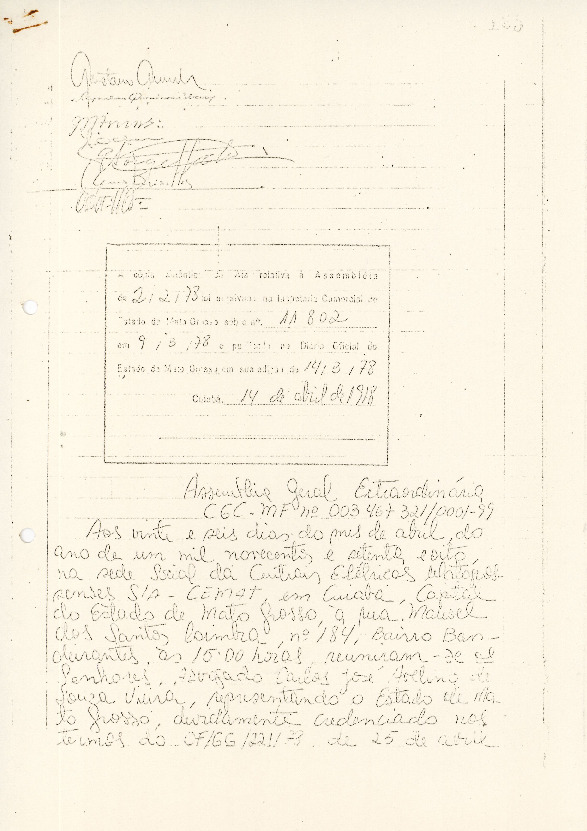 A cópia da Ata relativa à Assembléia
de 2/2/78 foi arquivada na Junta Comercial do
Estado de Mato Grosso sob o nº. 11 802
em 9/3/78 e no Diario Oficial do
Estado de Mato Grosso, em sua edição de 14/3/78
Cuiabá, 14 de abril de 1978
Assembléia Geral Extraordinária
CGC-MF nº 003 467 321/0001-99
Aos vinte e seis dias do mes de abril, do
ano de um mil novecentos e setenta e oito,
na sede Social da Centrais Elétricas Matogros
senses S/A - CEMAT, em Cuiabá, Capital
do Estado de Mato Grosso, a rua Manoel
dos Santos Coimbra, nº 184, Bairro Ban-
deirantes, as 15:00 horas, reuniram-se os
Senhores, Advogado Carlos José Avelino de
Souza Vieira, representando o Estado de Ma
to Grosso, devidamente credenciado nos
termos do OF/GG/221/78, de 25 de abril